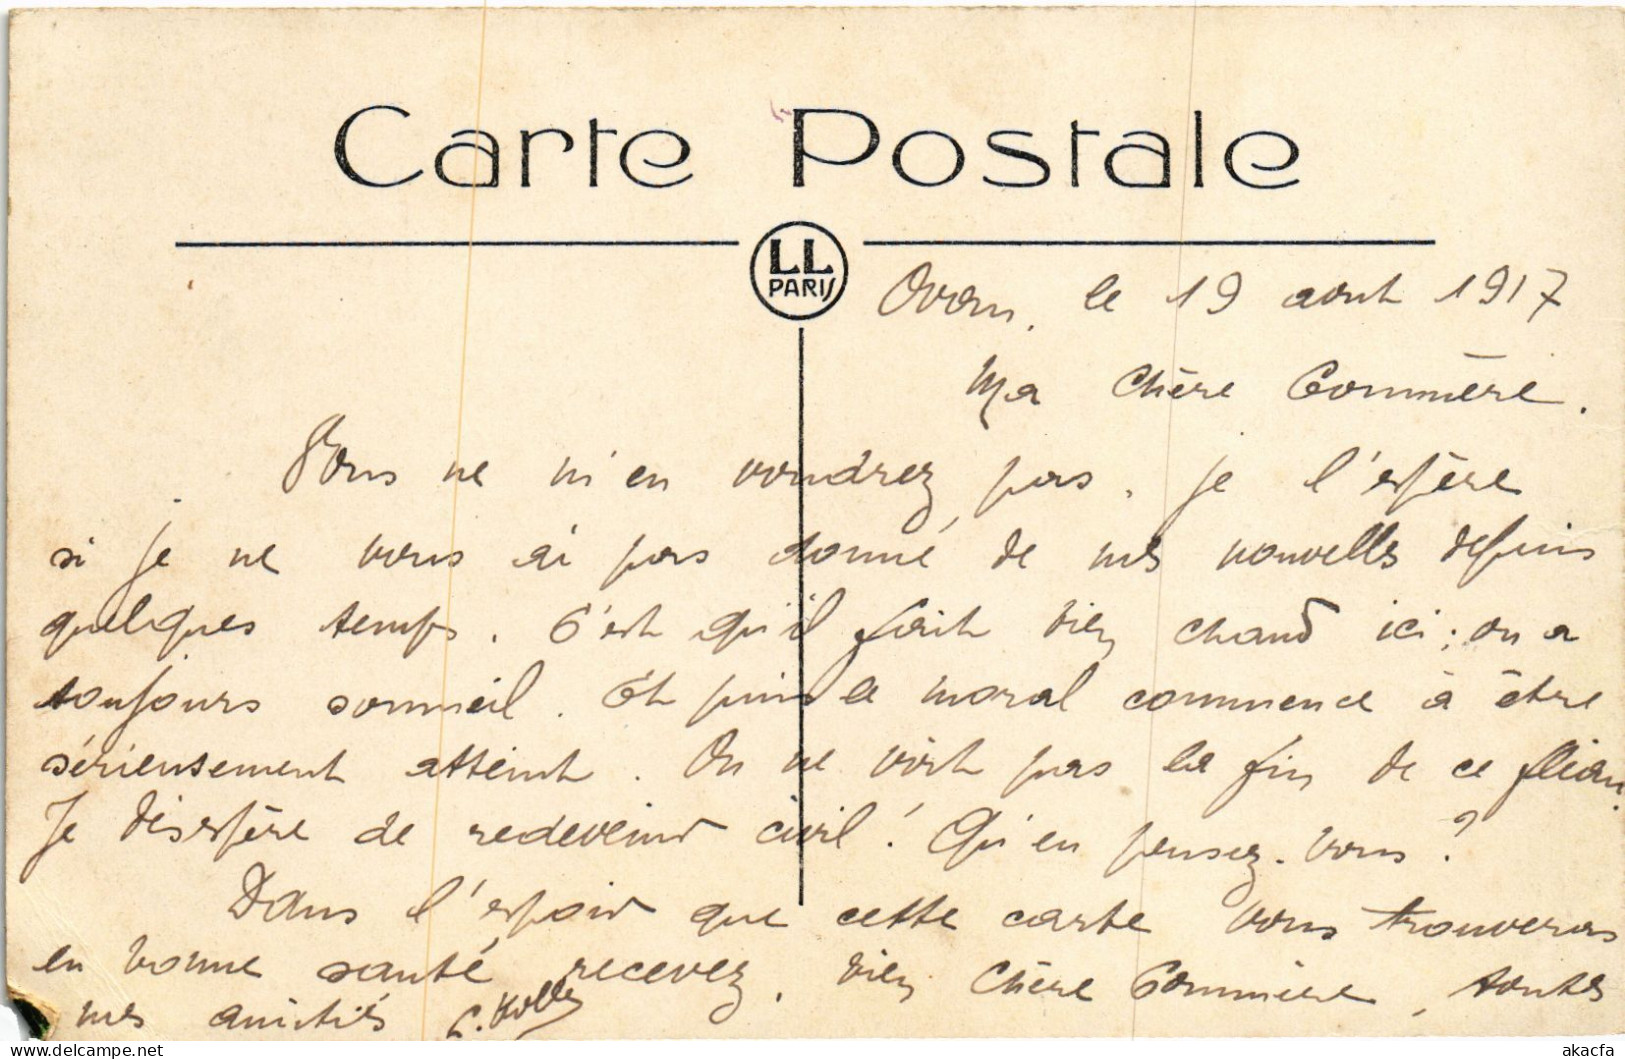 Carte Postale
LL
PARIS
Oran, le 19 août 1917
Ma Chère Commère.
Vous ne m'en voudrez pas, je l'espère
si je ne vous ai pas donné de mes nouvelles depuis
quelques temps. C'est qu'il fait bien chaud ici; on a
toujours sommeil. Et puis le moral commence à être
sérieusement atteint. On ne voit pas la fin de ce fléau.
Je désespère de redevenir civil! Qu'en pensez-vous?
Dans l'espoir que cette carte vous trouveras
en bonne santé recevez, bien Chère Commère, toutes
mes amitiés
akacfa